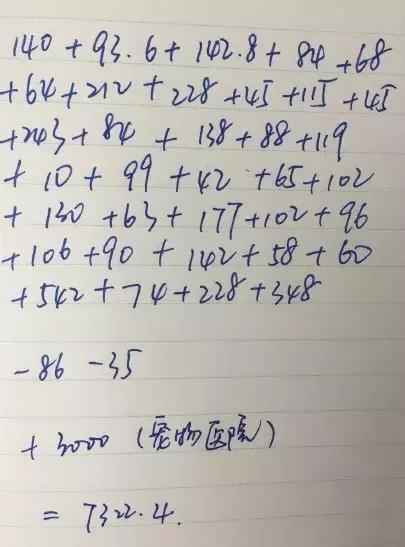 140 + 93.6 + 142.8 + 84 + 68
+ 64 + 212 + 228 + 45 + 115 + 45
+ 243 + 84 + 138 + 88 + 119
+ 10 + 99 + 42 + 65 + 102
+ 130 + 63 + 177 + 102 + 96
+ 106 + 90 + 142 + 58 + 60
+ 542 + 74 + 228 + 348
- 86 - 35
+ 3000 (宠物医院)
= 7322.4.